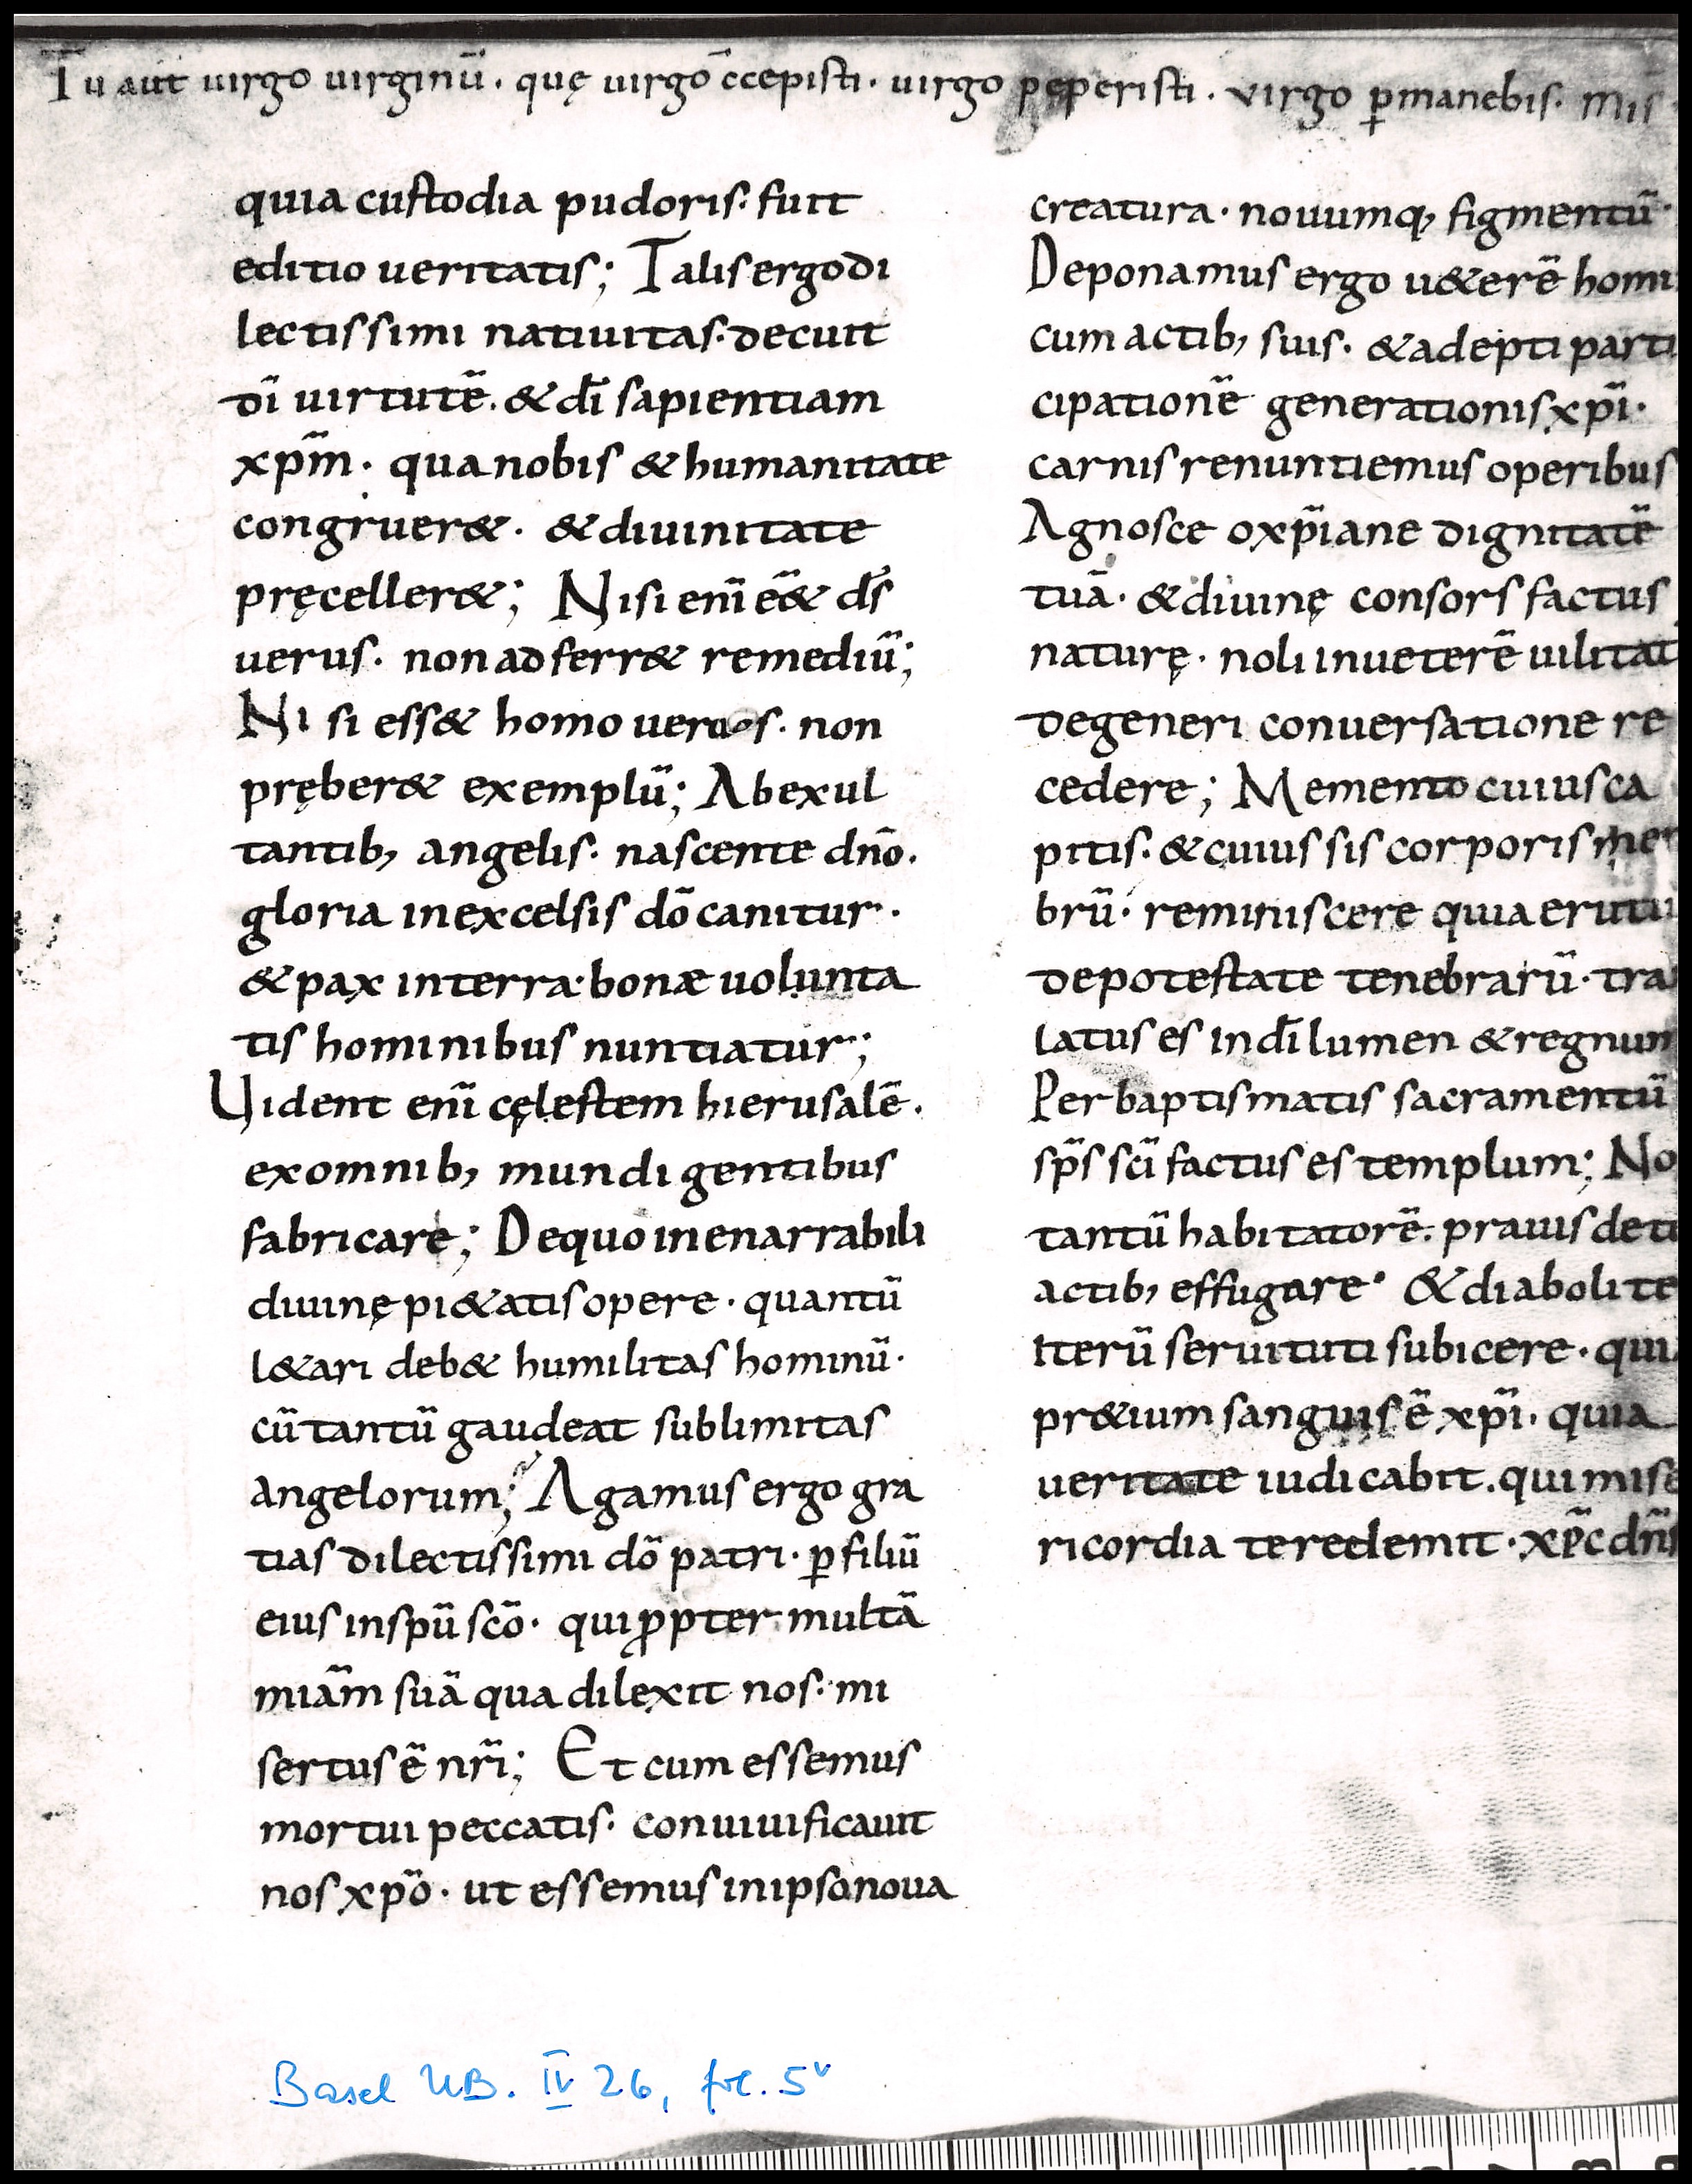 Tu aūt uirgo uirginū. quę uirgo c̄cepisti. uirgo peperisti. virgo ꝑmanebis. Mis
quia custodia pudoris. fuit
editio ueritatis; Talis ergo di
lectissimi natiuitas. decuit
dī uirtutē. & dī sapientiam
xp̄m. qua nobis & humanitate
congruer&. & diuinitate
pręceller&; Nisi enī ē& ds̄
uerus. non adferr& remediū;
Nisi ess& homo uerus. non
pręber& exemplū; Ab exul
tantib; angelis. nascente dn̄o.
gloria in excelsis dō canitur.
& pax in terra. bonæ uolunta
tis hominibus nuntiatur;
Uident enī cęlestem hierusalē.
ex omnib; mundi gentibus
fabricare; De quo inenarrabili
diuinę pi&atis opere. quantū
l&ari deb& humilitas hominū.
cū tantū gaudeat sublimitas
angelorum; Agamus ergo gra
tias dilectissimi dō patri. ꝑ filiū
eius in spū scō. qui ꝓpter multā
miām suā qua dilexit nos. mi
sertus ē nr̄i; Et cum essemus
mortui peccatis. conuiuificauit
nos xp̄o. ut essemus in ipso noua
creatura. nouumq; figmentū.
Deponamus ergo u&erē homi
cum actib; suis. & adepti parti
cipationē generationis xp̄i.
carnis renuntiemus operibus
Agnosce o xp̄iane dignitatē
tuā. & diuinę consors factus
naturę. noli in ueterē uilitat
degeneri conuersatione re
cedere; Memento cuius ca
pitis. & cuius sis corporis mem
brū. reminiscere quia erutu
de potestate tenebrarū. tra
latus es in dī lumen & regnum
Per baptismatis sacramentū
sp̄s scī factus es templum; No
tantū habitatorē. prauis de tu
actib; effugare. & diaboli te
Iterū seruituti subicere. quia
pr&ium sanguis ē xp̄i. quia
ueritate iudicabit. qui mise
ricordia te redemit. xp̄c dn̄s
Basel UB. IV 26, fol. 5v